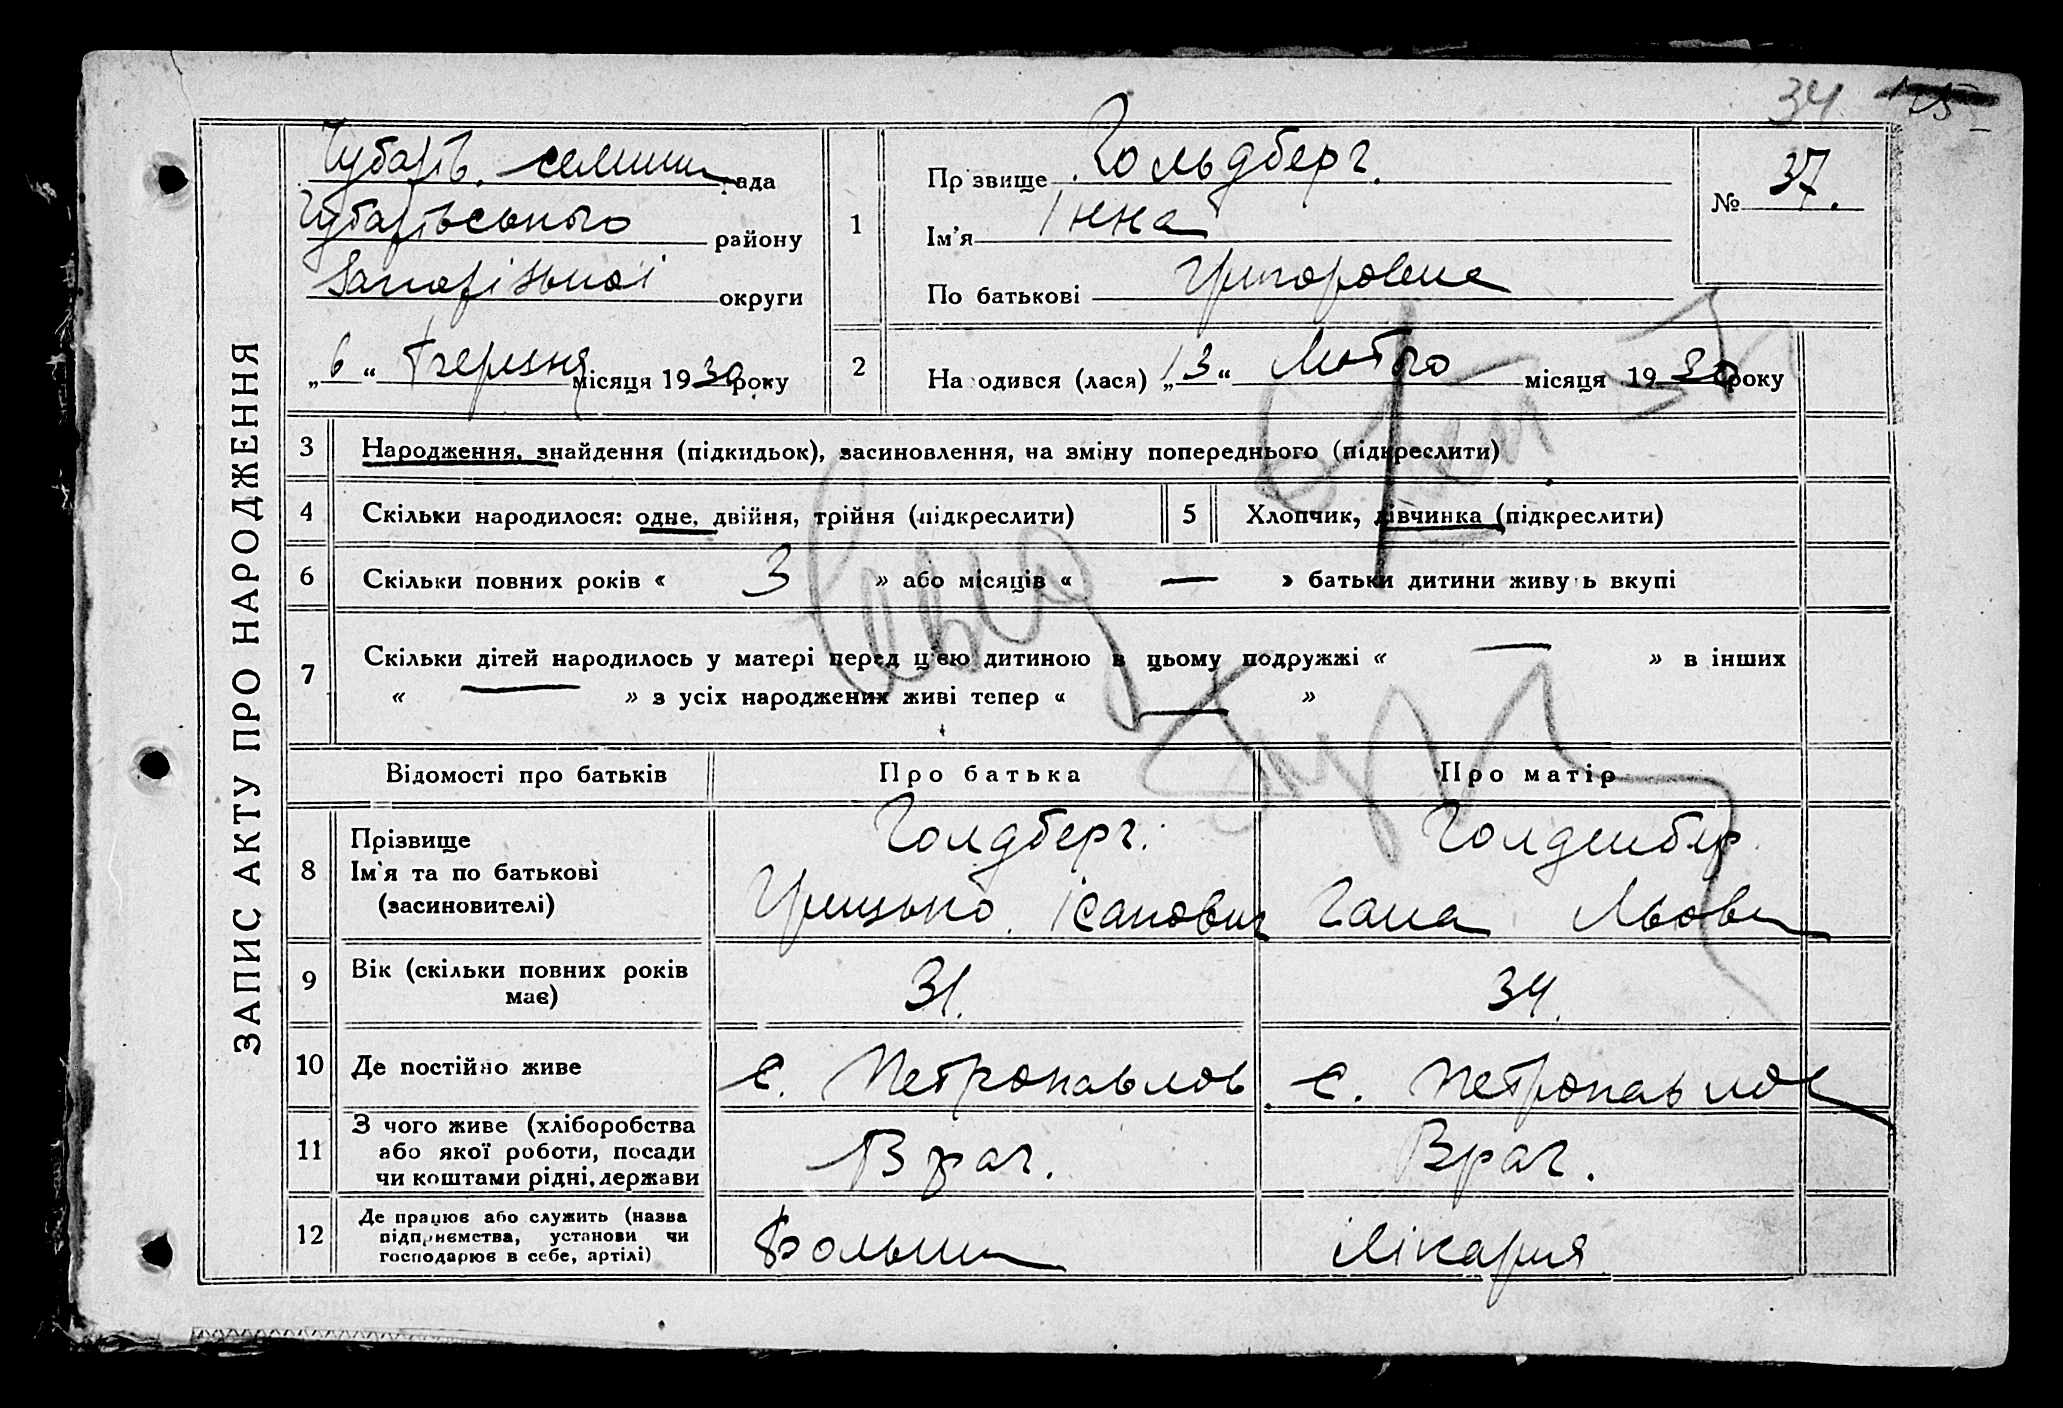 34
ЗАПИС АКТУ ПРО НАРОДЖЕННЯ
Чубарів. селищн рада
Чубарівського району
Запорізької округи
„6“ червня місяця 1930 року
1
Прізвище Гольдберг.
Ім’я Інна
По батькові Григоровна
№ 37.
2 Народився (лася) „13“ Лютого місяця 1930 року
3 Народження, знайдення (підкидьок), засиновлення, на зміну попереднього (підкреслити)
4 Скільки народилося: одне, двійня, трійня (підкреслити) 5 Хлопчик, дівчинка (підкреслити)
6 Скільки повних років « 3 » або місяців « — » батьки дитини живуть вкупі
7 Скільки дітей народилось у матері перед ц'ею дитиною в цьому подружжі « — » в інших
« — » з усіх народжених живі тепер « — »
Відомості про батьків Про батька Про матір
8 Прізвище
Ім'я та по батькові
(засиновителі)
Голдберг.
Грицько Ісакович
Голденбер
Гана Львовн
9 Вік (скільки повних років
має)
31.
34.
10 Де постійно живе с. Петропавлов с. Петропавлов
11 З чого живе (хліборобства
або якої роботи, посади
чи коштами рідні, держави
Врач.
Врач.
12 Де працює або служить (назва
підприємства, установи чи
господарює в себе, артілі)
Больни
Лікарня